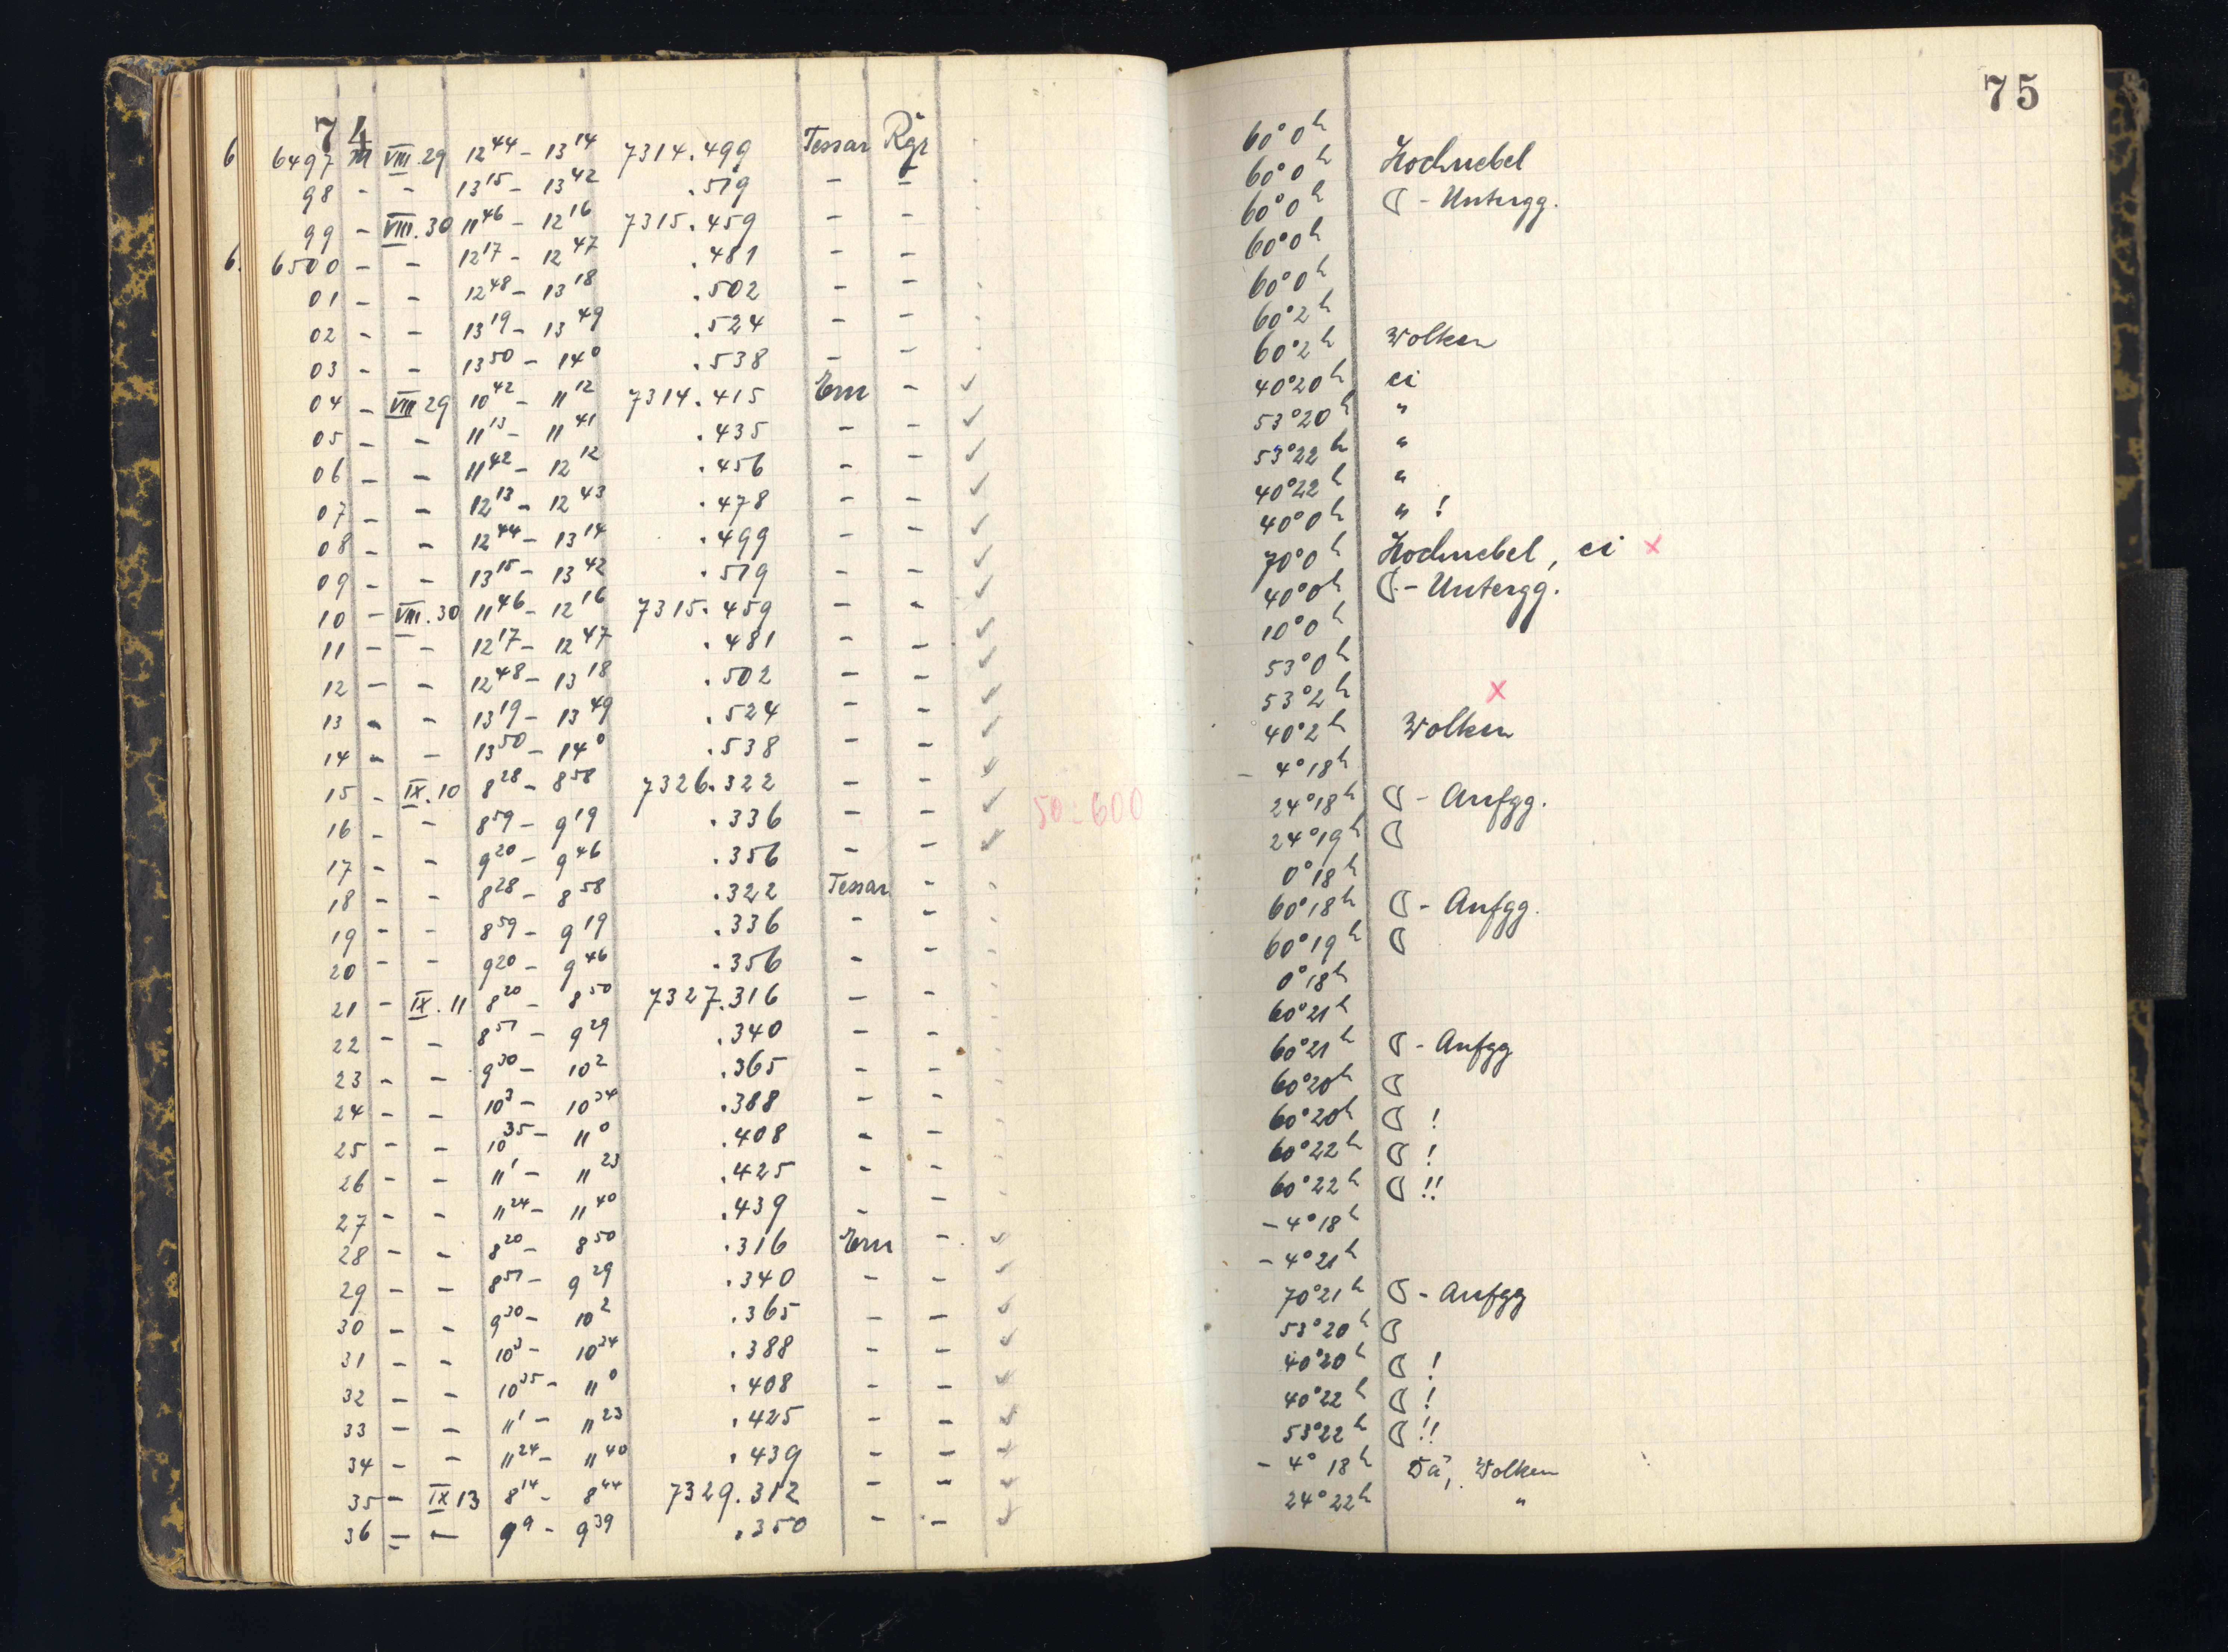 74
6 6497 M VIII.29 12⁴⁴ – 13¹⁴ 7314.499 Tessar Rgr
98 - - 13¹⁵ – 13⁴² .519 - -
99 - VIII.30 11⁴⁶ – 12¹⁶ 7315.459 - -
6. 6500 - - 12¹⁷ – 12⁴⁷ .481 - -
01 - - 12⁴⁸ – 13¹⁸ .502 - -
02 - - 13¹⁹ – 13⁴⁹ .524 - -
03 - - 13⁵⁰ – 14⁰ .538 - -
04 - VIII 29 10⁴² – 11¹² 7314.415 Ern - ✓
05 - - 11¹³ – 11⁴¹ .435 - - ✓
06 - - 11⁴² – 12¹² .456 - - ✓
07 - - 12¹³ – 12⁴³ .478 - - ✓
08 - - 12⁴⁴ – 13¹⁴ .499 - - ✓
09 - - 13¹⁵ – 13⁴² .519 - - ✓
10 - VIII.30 11⁴⁶ – 12¹⁶ 7315.459 - - ✓
11 - - 12¹⁷ – 12⁴⁷ .481 - - ✓
12 - - 12⁴⁸ – 13¹⁸ .502 - - ✓
13 - - 13¹⁹ – 13⁴⁹ .524 - - ✓
14 - - 13⁵⁰ – 14⁰ .538 - - ✓
15 - IX.10 8²⁸ – 8⁵⁸ 7326.322 - - ✓
16 - - 8⁵⁹ – 9¹⁹ .336 - - ✓ 50-600
17 - - 9²⁰ – 9⁴⁶ .356 - - ✓
18 - - 8²⁸ – 8⁵⁸ .322 Tessar -
19 - - 8⁵⁹ – 9¹⁹ .336 - -
20 - - 9²⁰ – 9⁴⁶ .356 - -
21 - IX.11 8²⁰ – 8⁵⁰ 7327.316 - -
22 - - 8⁵¹ – 9²⁹ .340 - -
23 - - 9³⁰ – 10² .365 - -
24 - - 10³ – 10³⁴ .388 - -
25 - - 10³⁵ – 11⁰ .408 - -
26 - - 11¹ – 11²³ .425 - -
27 - - 11²⁴ – 11⁴⁰ .439 - -
28 - - 8²⁰ – 8⁵⁰ .316 Ern - ✓
29 - - 8⁵¹ – 9²⁹ .340 - - ✓
30 - - 9³⁰ – 10² .365 - - ✓
31 - - 10³ – 10³⁴ .388 - - ✓
32 - - 10³⁵ – 11⁰ .408 - - ✓
33 - - 11¹ – 11²³ .425 - - ✓
34 - - 11²⁴ – 11⁴⁰ .439 - - ✓
35 - IX 13 8¹⁴ – 8⁴⁴ 7329.312 - - ✓
36 - - 9⁹ – 9³⁹ .350 - - ✓
75
60° 0ʰ
60° 0ʰ Hochnebel
60° 0ʰ ☾ - Untergg.
60° 0ʰ
60° 0ʰ
60° 2ʰ
60° 2ʰ Wolken
40° 20ʰ ci
53° 20ʰ "
53° 22ʰ "
40° 22ʰ "
40° 0ʰ " !
70° 0ʰ Hochnebel, ci x
40° 0ʰ ☾ - Untergg.
10° 0ʰ
53° 0ʰ
53° 2ʰ x
40° 2ʰ Wolken
- 4° 18ʰ
24° 18ʰ ☾ - Aufgg.
24° 19ʰ ☾
0° 18ʰ
60° 18ʰ ☾ - Aufgg.
60° 19ʰ ☾
0° 18ʰ
60° 21ʰ
60° 21ʰ ☾ - Aufgg
60° 20ʰ ☾
60° 20ʰ ☾ !
60° 22ʰ ☾ !
60° 22ʰ ☾ !!
- 4° 18ʰ
- 4° 21ʰ
70° 21ʰ ☾ - Aufgg
53° 20ʰ ☾
40° 20ʰ ☾ !
40° 22ʰ ☾ !
53° 22ʰ ☾ !!
- 4° 18ʰ Dä, Wolken
24° 22ʰ "